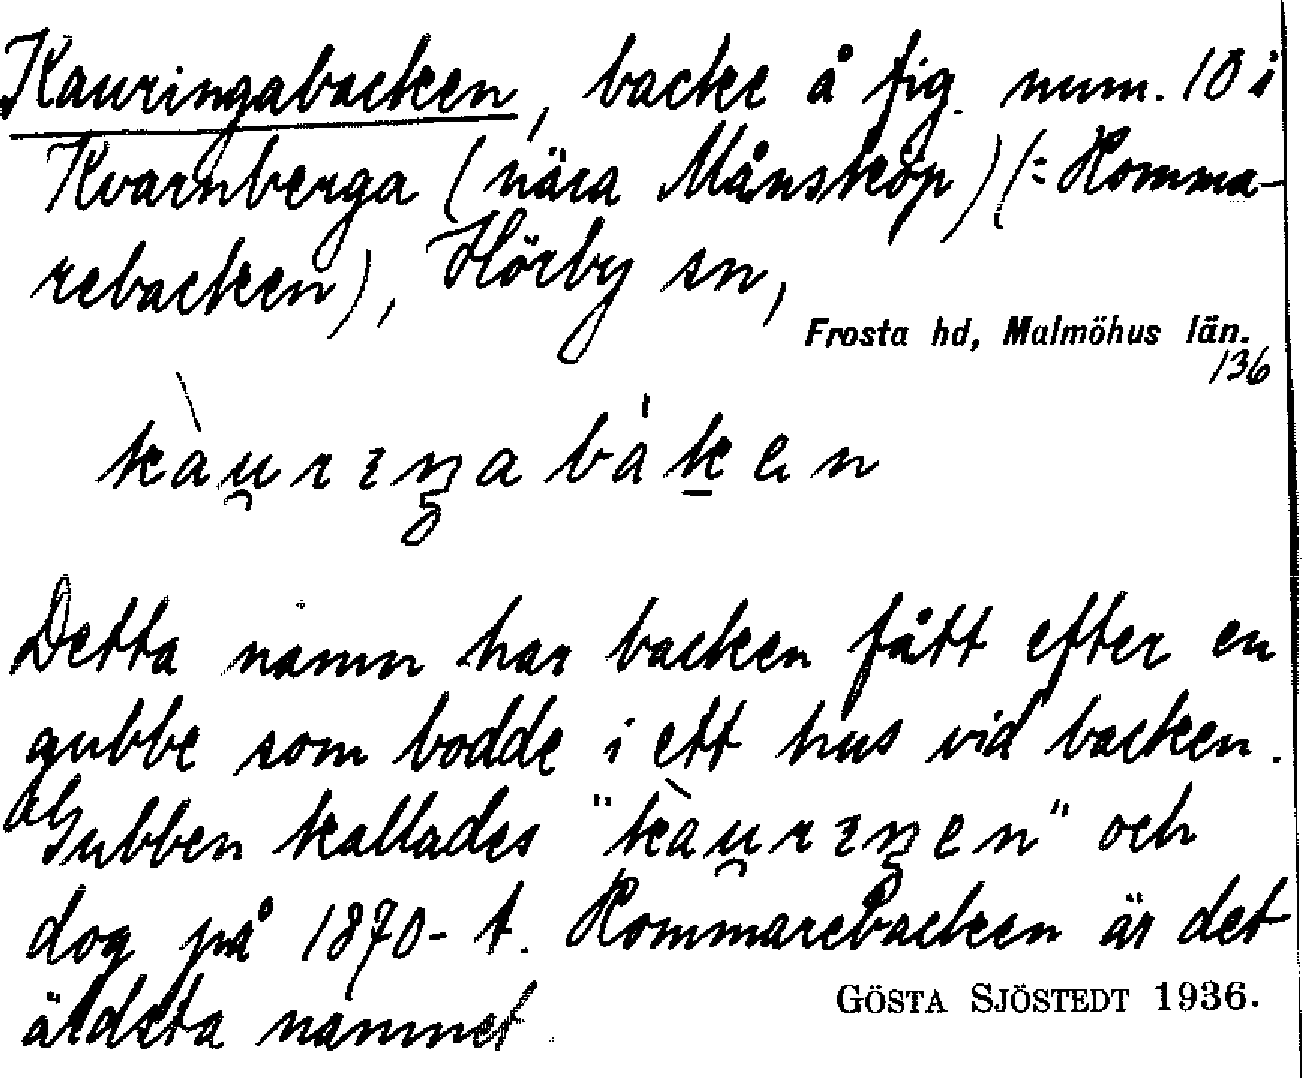 Kauringabacken, backe å fig. num. 10 i
Kvarnberga (nära Månsköp) (= Homma-
rebacken), Hörby sn,
Frosta hd, Malmöhus län.
136
kàu̯rıŋabák̠en
Detta namn har backen fått efter en
gubbe som bodde i ett hus vid backen.
Gubben kallades "kàu̯rıŋen" och
dog på 1870-t. Hommarebacken är det
äldsta namnet.
GÖSTA SJÖSTEDT 1936.